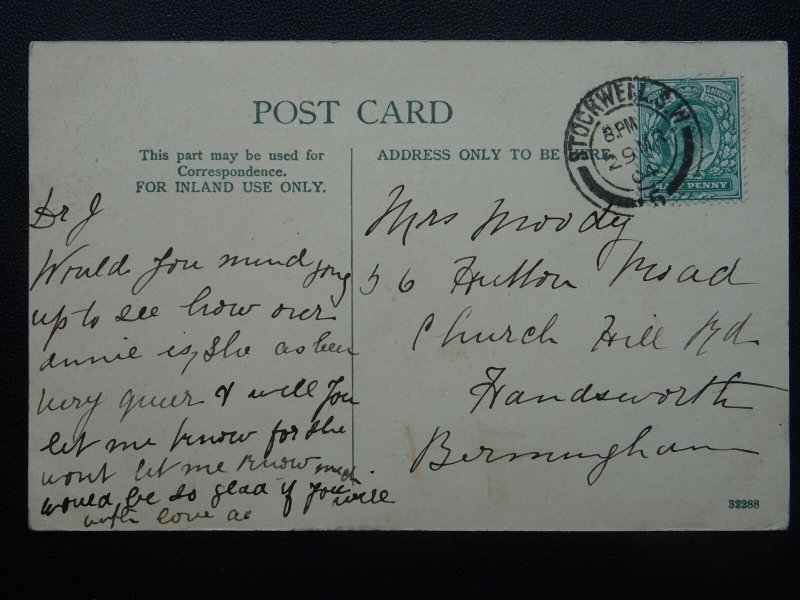 POST CARD
This part may be used for
Correspondence.
FOR INLAND USE ONLY.
ADDRESS ONLY TO BE HERE.
STOCKWELL. S.W
8.PM
29 MR
04
PENNY
Dr J
Would you mind going
up to see how our
annie is, she as been
very queer & will you
let me know for she
wont let me know much
would be so glad if you will
with love as
Mrs Moody
56 Hutton Road
Church Hill Rd
Handsworth
Bermingham
32288